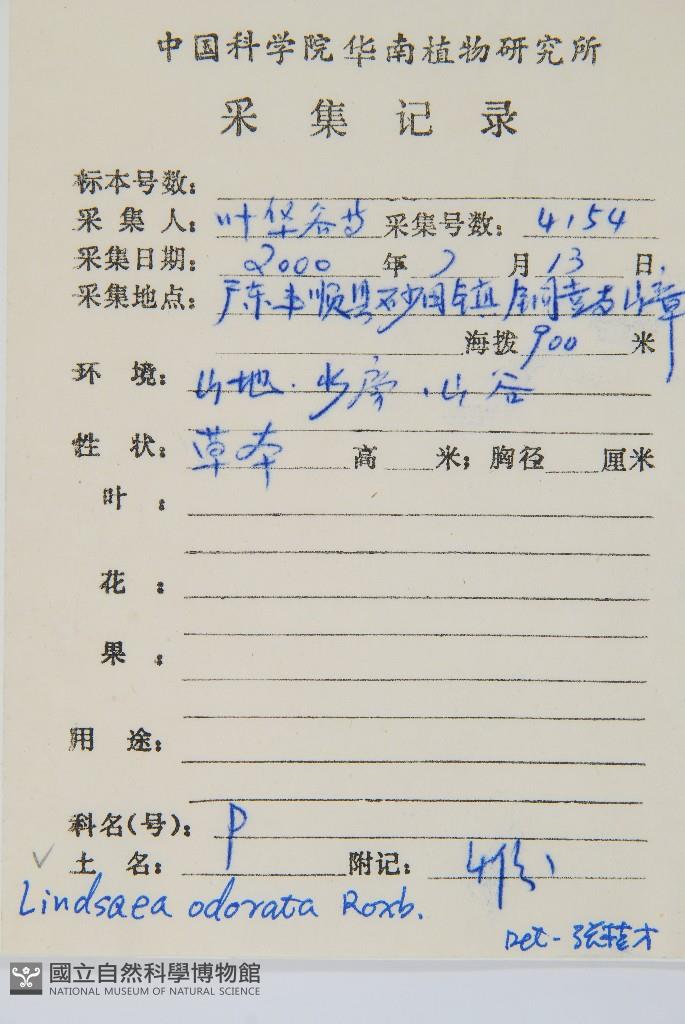 中国科学院华南植物研究所
采集记录
标本号数：
采集人：叶华谷等 采集号数：4154
采集日期：2000年7月13日
采集地点：广东丰顺县砂田镇铜鼓嶂
海拨900米
环境：山地．水旁．山谷
性状：草本 高 米；胸径 厘米
叶：
花：
果：
用途：
科名(号)：P
土名： 附记：4份
Lindsaea odorata Roxb.
Det - 张桂才
國立自然科學博物館
NATIONAL MUSEUM OF NATURAL SCIENCE